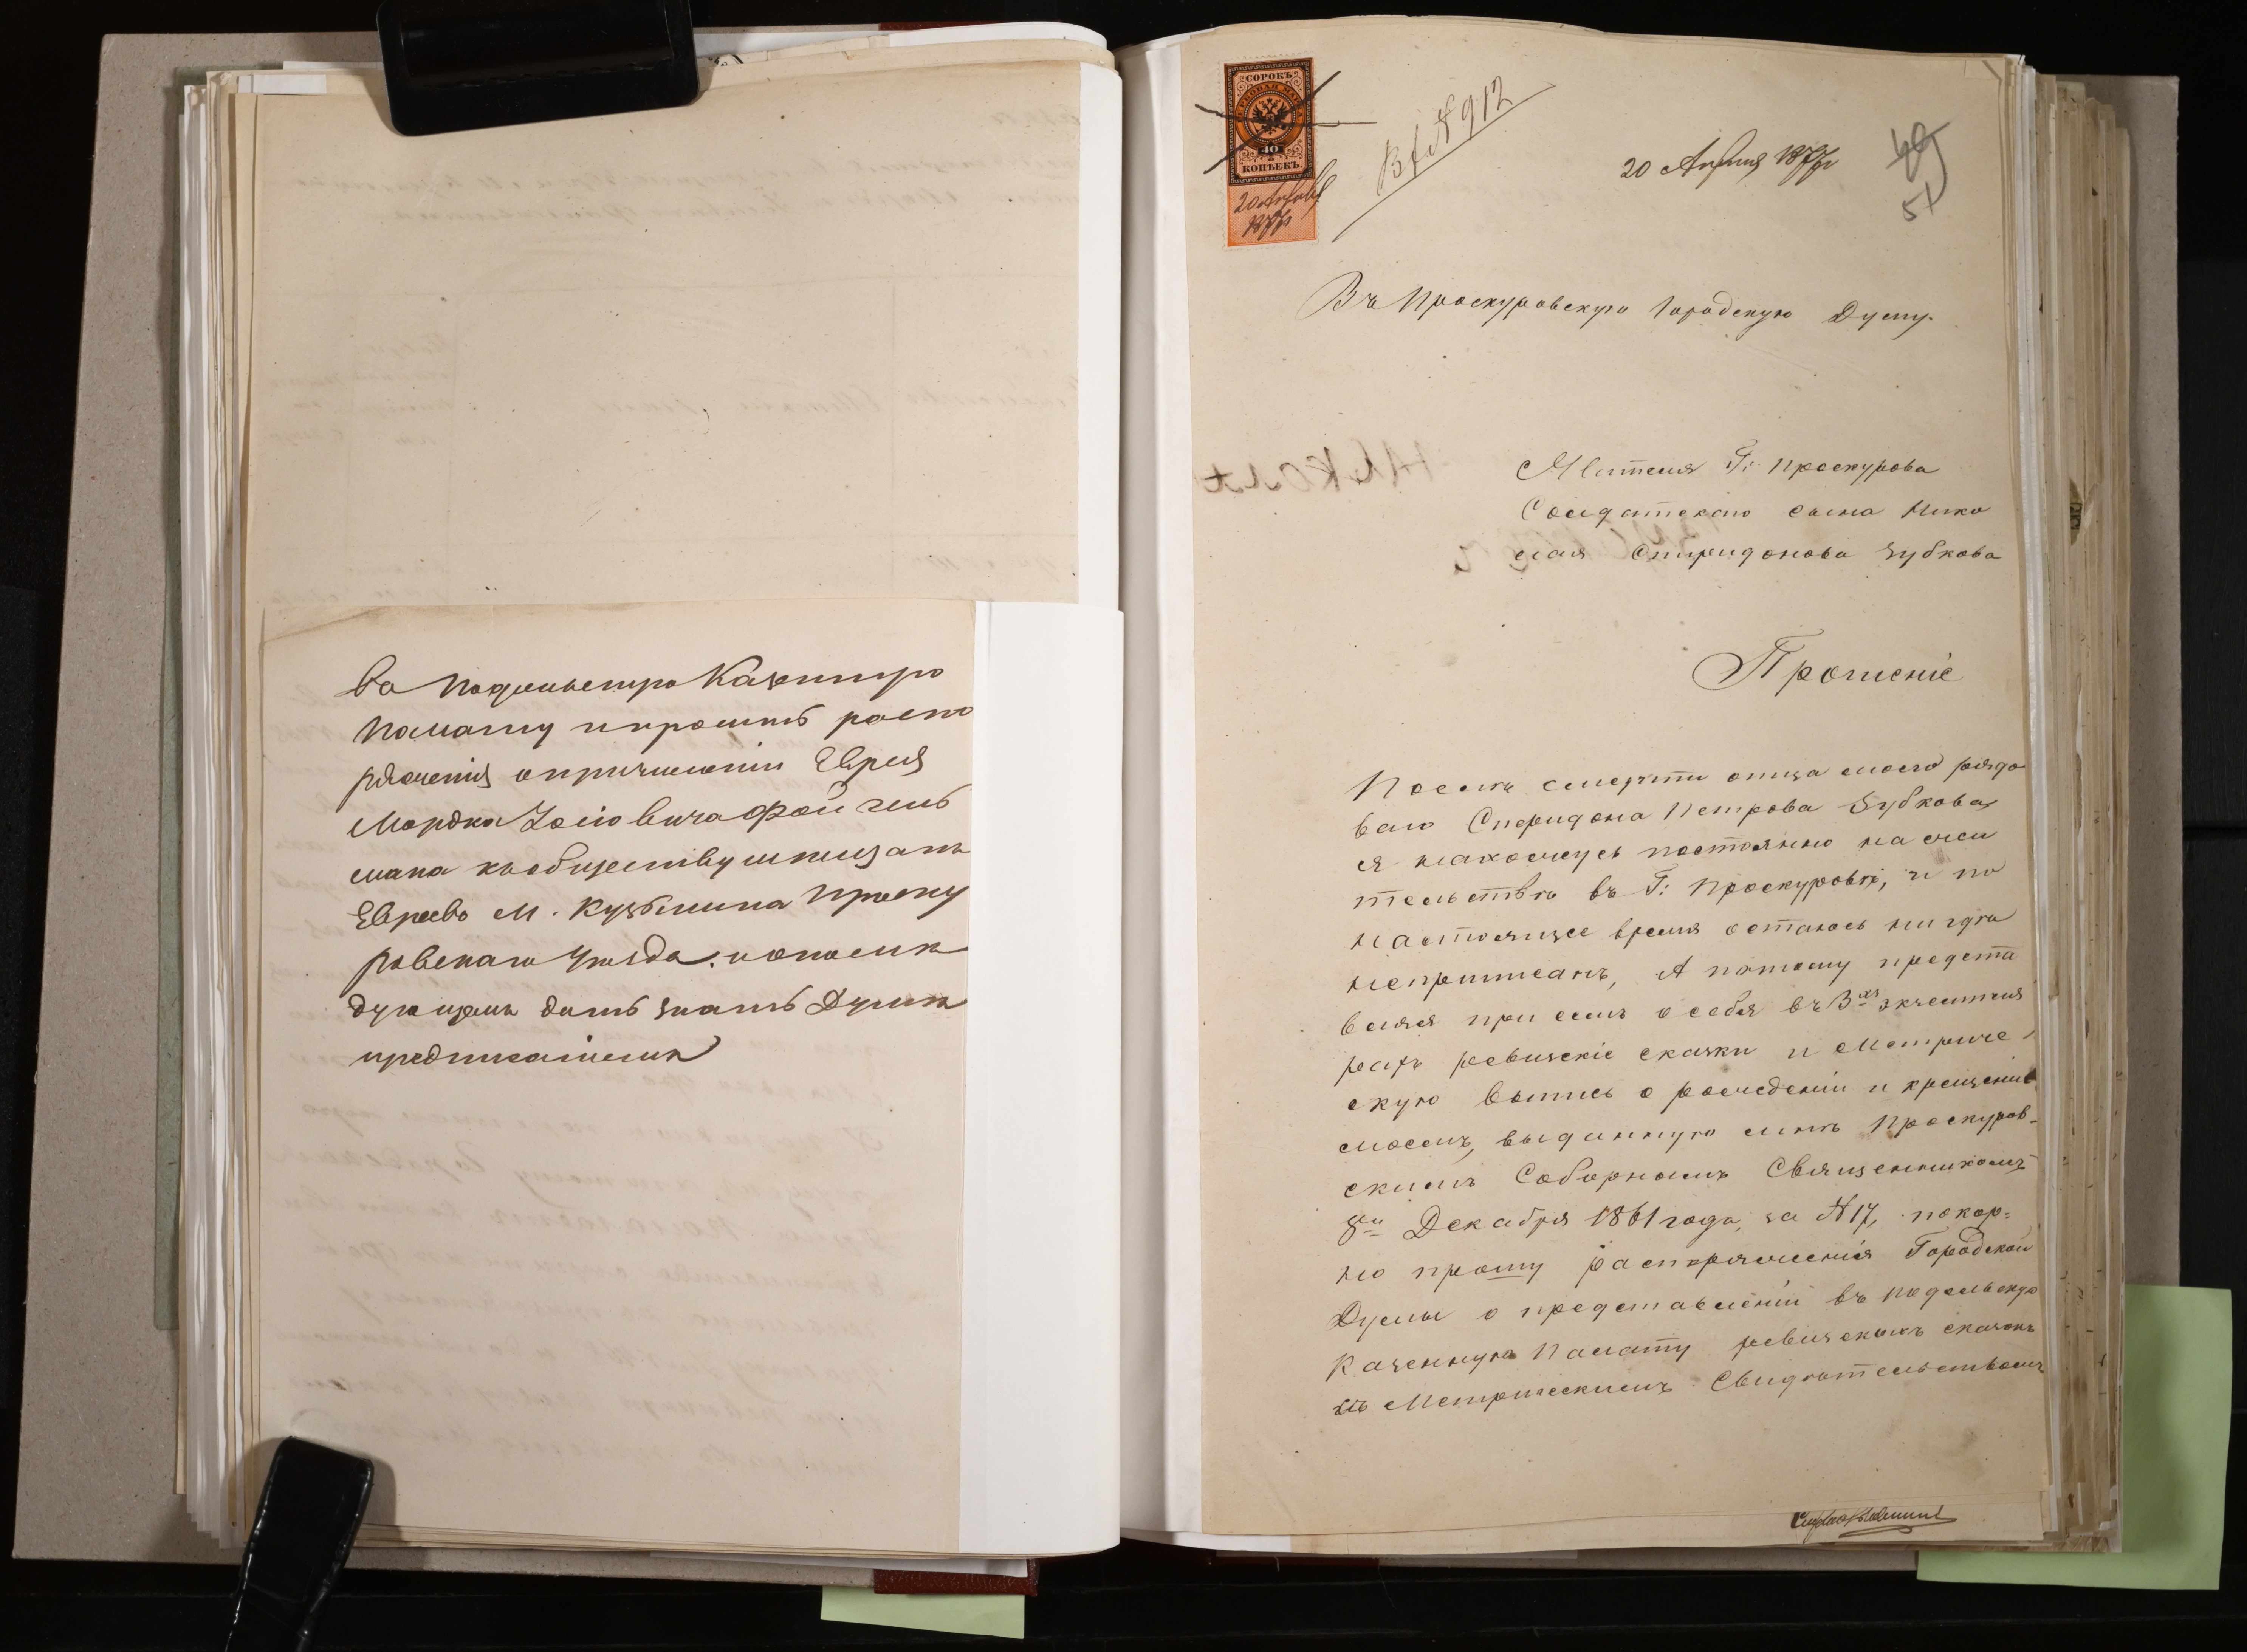 ва Подольскую Казенную
Палату и просить распо
ряжения о причислении Еврея
Мордка Хаимовича Фойгель
мана къ обществу мещанъ
Евреевъ М. Кузьмина Проску
ровскаго Уезда. и о послѣ
дующемъ дать знать Думѣ
предписаніемъ
СОРОКЪ
ГЕРБОВАЯ МАРКА
40
КОПѢЕКЪ
20 Апрѣля
187
N 912
20 Апрѣля 187
49
51
Въ Проскуровскую Городскую Думу.
Жителя Г: Проскурова
Солдатскаго сына Нико
лая Спиридонова Зубкова
Прошеніе
Послѣ смерти отца моего рядо
ваго Спиридона Петрова Зубкова,
я нахожусь постоянно на жи
тельствѣ въ Г: Проскуровѣ, и по
настоящее время остаюсь нигдѣ
неприписанъ, А потому предста
вляя при семъ о себѣ въ 3хъ экземпля
рахъ ревизскіе сказки и Метриче
скую выпись о рожденіи и крещеніи
моемъ, выданную мнѣ Проскуров-
скимъ Соборнымъ Священникомъ
8го Декабря 1861 года, за N 17, покор-
но прошу распоряженія Городской
Думы о представленіи въ Подольскую
Казенную Палату ревизскихъ сказокъ
съ Метрическимъ Свидѣтельствомъ